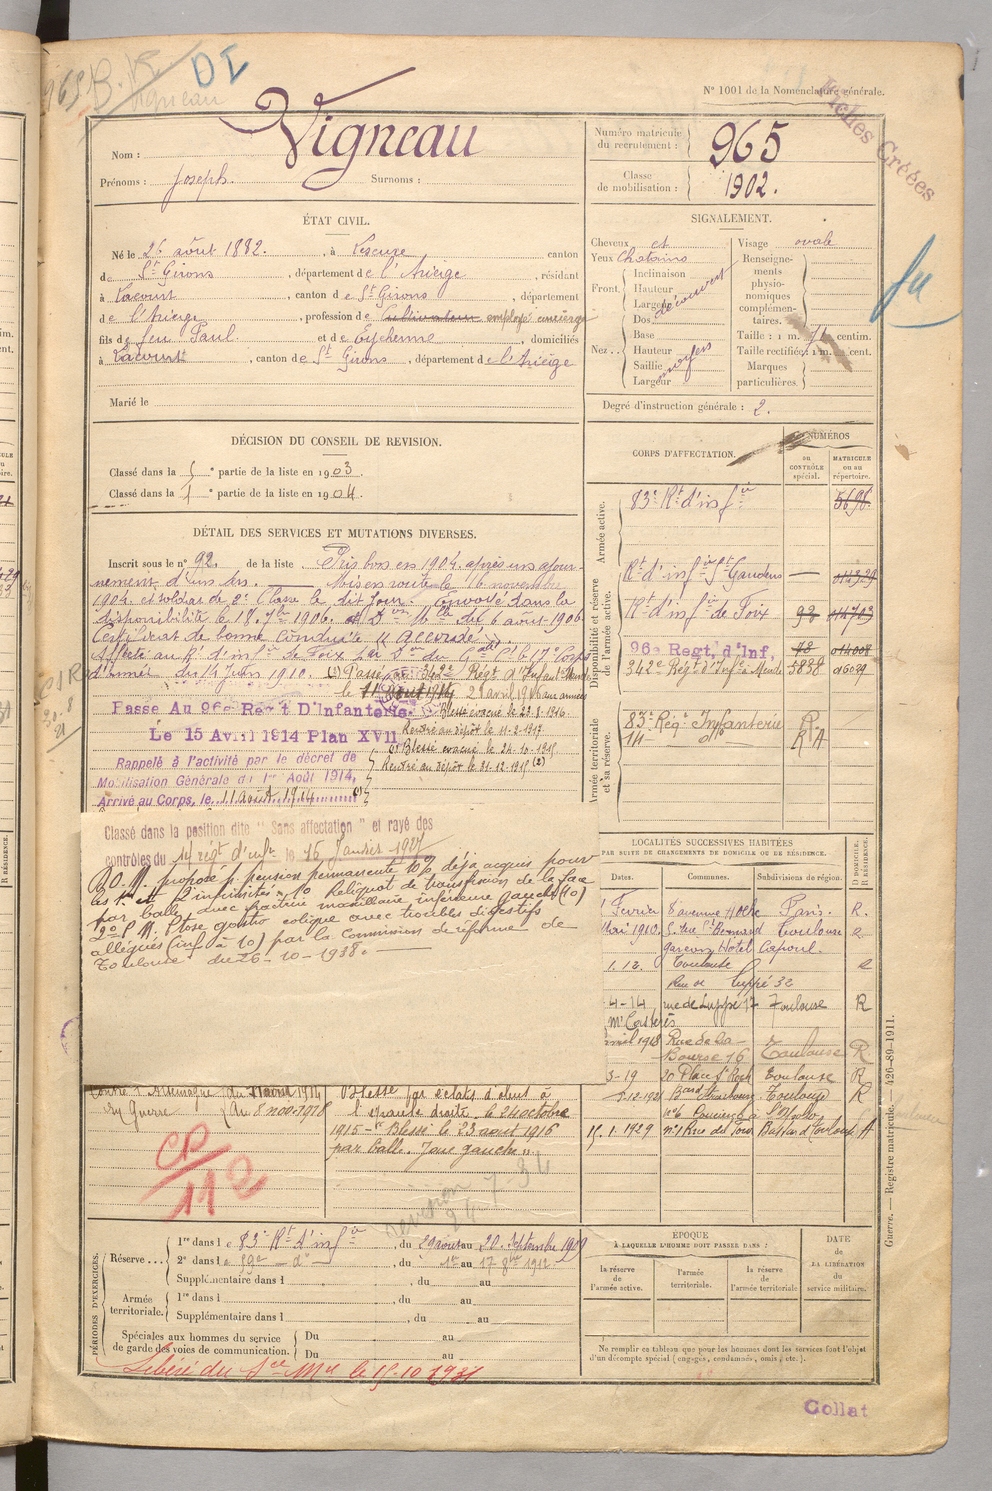 965
Vigneau
DI
N° 1001 de la Nomenclature générale.
Fiches Créées
Nom : Vigneau
Prénoms : Joseph. Surnoms :
Numéro matricule du recrutement : 965
Classe de mobilisation : 1902.
ÉTAT CIVIL.
Né le 26 août 1882. , à Lescure canton
de St Girons , département de l'Ariège , résidant
à Lacourt , canton de St Girons , département
de l'Ariège , profession de cultivateur employé concierge
fils de feu Paul et de Eychenne , domiciliés
à Lacourt , canton de St Girons , département de l'Ariège
Marié le
SIGNALEMENT.
Cheveux et
Yeux Chatains
Front. Inclinaison
Hauteur
Largeur
découvert
Nez. Dos
Base
Hauteur
Saillie
Largeur
moyens
Visage ovale
Renseignements physionomiques complémentaires.
Taille : 1 m. 71 centim.
Taille rectifiée : 1 m. cent.
Marques particulières.
Degré d'instruction générale : 2.
DÉCISION DU CONSEIL DE REVISION.
Classé dans la 5e partie de la liste en 1903.
Classé dans la 1e partie de la liste en 1904.
DÉTAIL DES SERVICES ET MUTATIONS DIVERSES.
Inscrit sous le n° 92. de la liste Pris bon en 1904, après un ajour-
nement d'un an. Mis en route le 16 novembre
1904, et soldat de 2e Classe le dit jour. Envoyé dans la
disponibilité le 18. 7bre 1906. Don Mlle du 6 août 1906.
Certificat de bonne Conduite "Accordé".
Affecté au Rt d'infie de Foix par Don du Gal Ct le 17e Corps
d'armée du 14 Juin 1910. Passé au 342e Régt d'Infanterie
le 28 avril 1916 aux armées
Passe Au 96e Regt D'Infanterie
Blessé évacué le 23.8.1916.
Rentré au dépôt le 11-2-1917
Le 15 Avril 1914 Plan XVII
Blessé évacué le 24.10.1915
Rentré au dépôt le 31.12.1915 (2)
Rappelé à l'activité par le décret de
Mobilisation Générale du 1er Août 1914,
Arrivé au Corps, le 11 août 1914
Classé dans la position dite "Sans affectation" et rayé des
contrôles du 14 régt d'infie le 15 Janvier 1927
P.O.M. proposé p. pension permanente 10% déjà acquis pour
les 1er et 2e infirmités. 1o Reliquat de transfixion de la face
par balle avec fracture maxillaire inférieure gauche (10)
2o P.M. Ptose gastro colique avec troubles digestifs
allégués (inf. à 10) par la Commission de réforme de
Toulouse du 26-10-1938.
Contre l'Allemagne du 11 août 1914
Au 8 nov. 1918
Blessé par éclats d'obus à
le 24 octobre
1915 - Blessé le 23 août 1916
par balle. Joue gauche".
CP/112
CORPS D'AFFECTATION.
NUMÉROS
au CONTRÔLE spécial.
MATRICULE ou au répertoire.
Armée active.
83e Rt d'infie 5696
Disponibilité et réserve de l'armée active.
Rt d'infie St Gaudens — 014329
Rt d'infie de Foix 92 014703
96e Regt, d'Inf, 48 014008
342e Régt d'Infie Mende 5838 06079
Armée territoriale et sa réserve.
83e Régt Infanterie R.
14 — do R A
LOCALITÉS SUCCESSIVES HABITÉES
PAR SUITE DE CHANGEMENTS DE DOMICILE OU DE RÉSIDENCE.
Dates. Communes. Subdivisions de région. D DOMICILE. R RÉSIDENCE.
Février 8 avenue Hoche Paris. R.
Mai 1910. 5. rue St Bernard Toulouse R
garçon Hôtel Capoul.
1.12. Toulouse R
Rue de Luppé 32
4-14 rue de Luppé 17 Toulouse R
avril 1918 Rue de la Bourse 16 Toulouse R.
3-19 20 Place St Roch Toulouse R
8.12.1921 Bard Strasbourg Toulouse R
15.1.1929 n°1 Rue du Toulouse
PÉRIODES D'EXERCICES.
Réserve... 1re dans le 83e Rt d'infie , du 29 août au 20 Septembre 1909
2e dans le 59e do , du 1er au 17 8bre 1912
Supplémentaire dans l , du au
Armée territoriale. 1re dans l , du au
Supplémentaire dans l , du au
Spéciales aux hommes du service de garde des voies de communication. Du au
Du au
Libéré du Sce Mre le 15.10.1931
EPOQUE
À LAQUELLE L'HOMME DOIT PASSER DANS :
la réserve de l'armée active.
l'armée territoriale.
la réserve de l'armée territoriale
DATE de LA LIBÉRATION du service militaire.
Ne remplir ce tableau que pour les hommes dont les services font l'objet
d'un décompte spécial (engagés, condamnés, omis, etc.).
Guerre. — Registre matricule. — 426-89-1911.
Collat